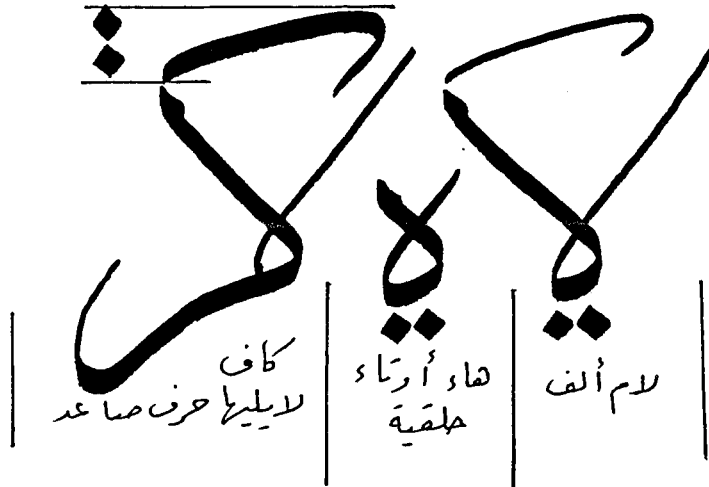 لام ألف
هاء أو تاء
حلقية
كاف
لا يليها حرف صاعد